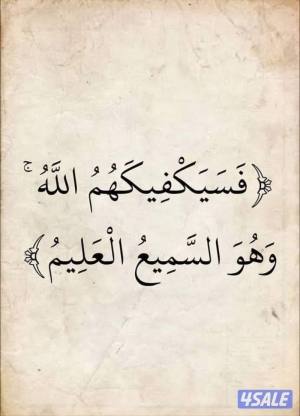 ﴿فَسَيَكْفِيكَهُمُ اللَّهُ ۚ
وَهُوَ السَّمِيعُ الْعَلِيمُ﴾
4SALE